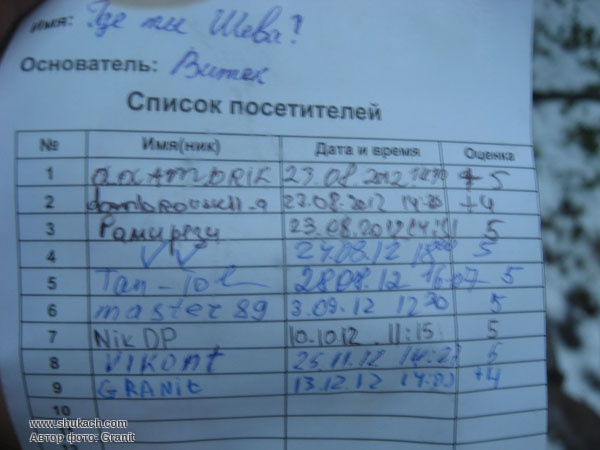 Имя: Где ты Шева?
Основатель: Витек
Список посетителей
№ Имя(ник) Дата и время Оценка
1 23.08.2012 +5
2 23.08.2012 14:30 +4
3 Рамирези 23.08.2012 5
4 VV 27.08.12 5
5 Tan-Tol 28.08.12 16:07 5
6 master89 3.09.12 12:30 5
7 NikDP 10.10.12 11:15 5
8 VIKont 25.11.12 5
9 GRANit 13.12.12 +4
10
11
www.shukach.com
Автор фото: Granit